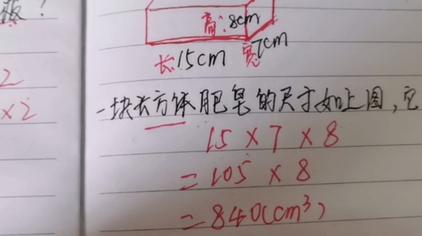 板?
高:8cm
长:15cm 宽7cm
2
×2
一块长方体肥皂的尺寸如上图,它
15×7×8
=105×8
=840(cm³)